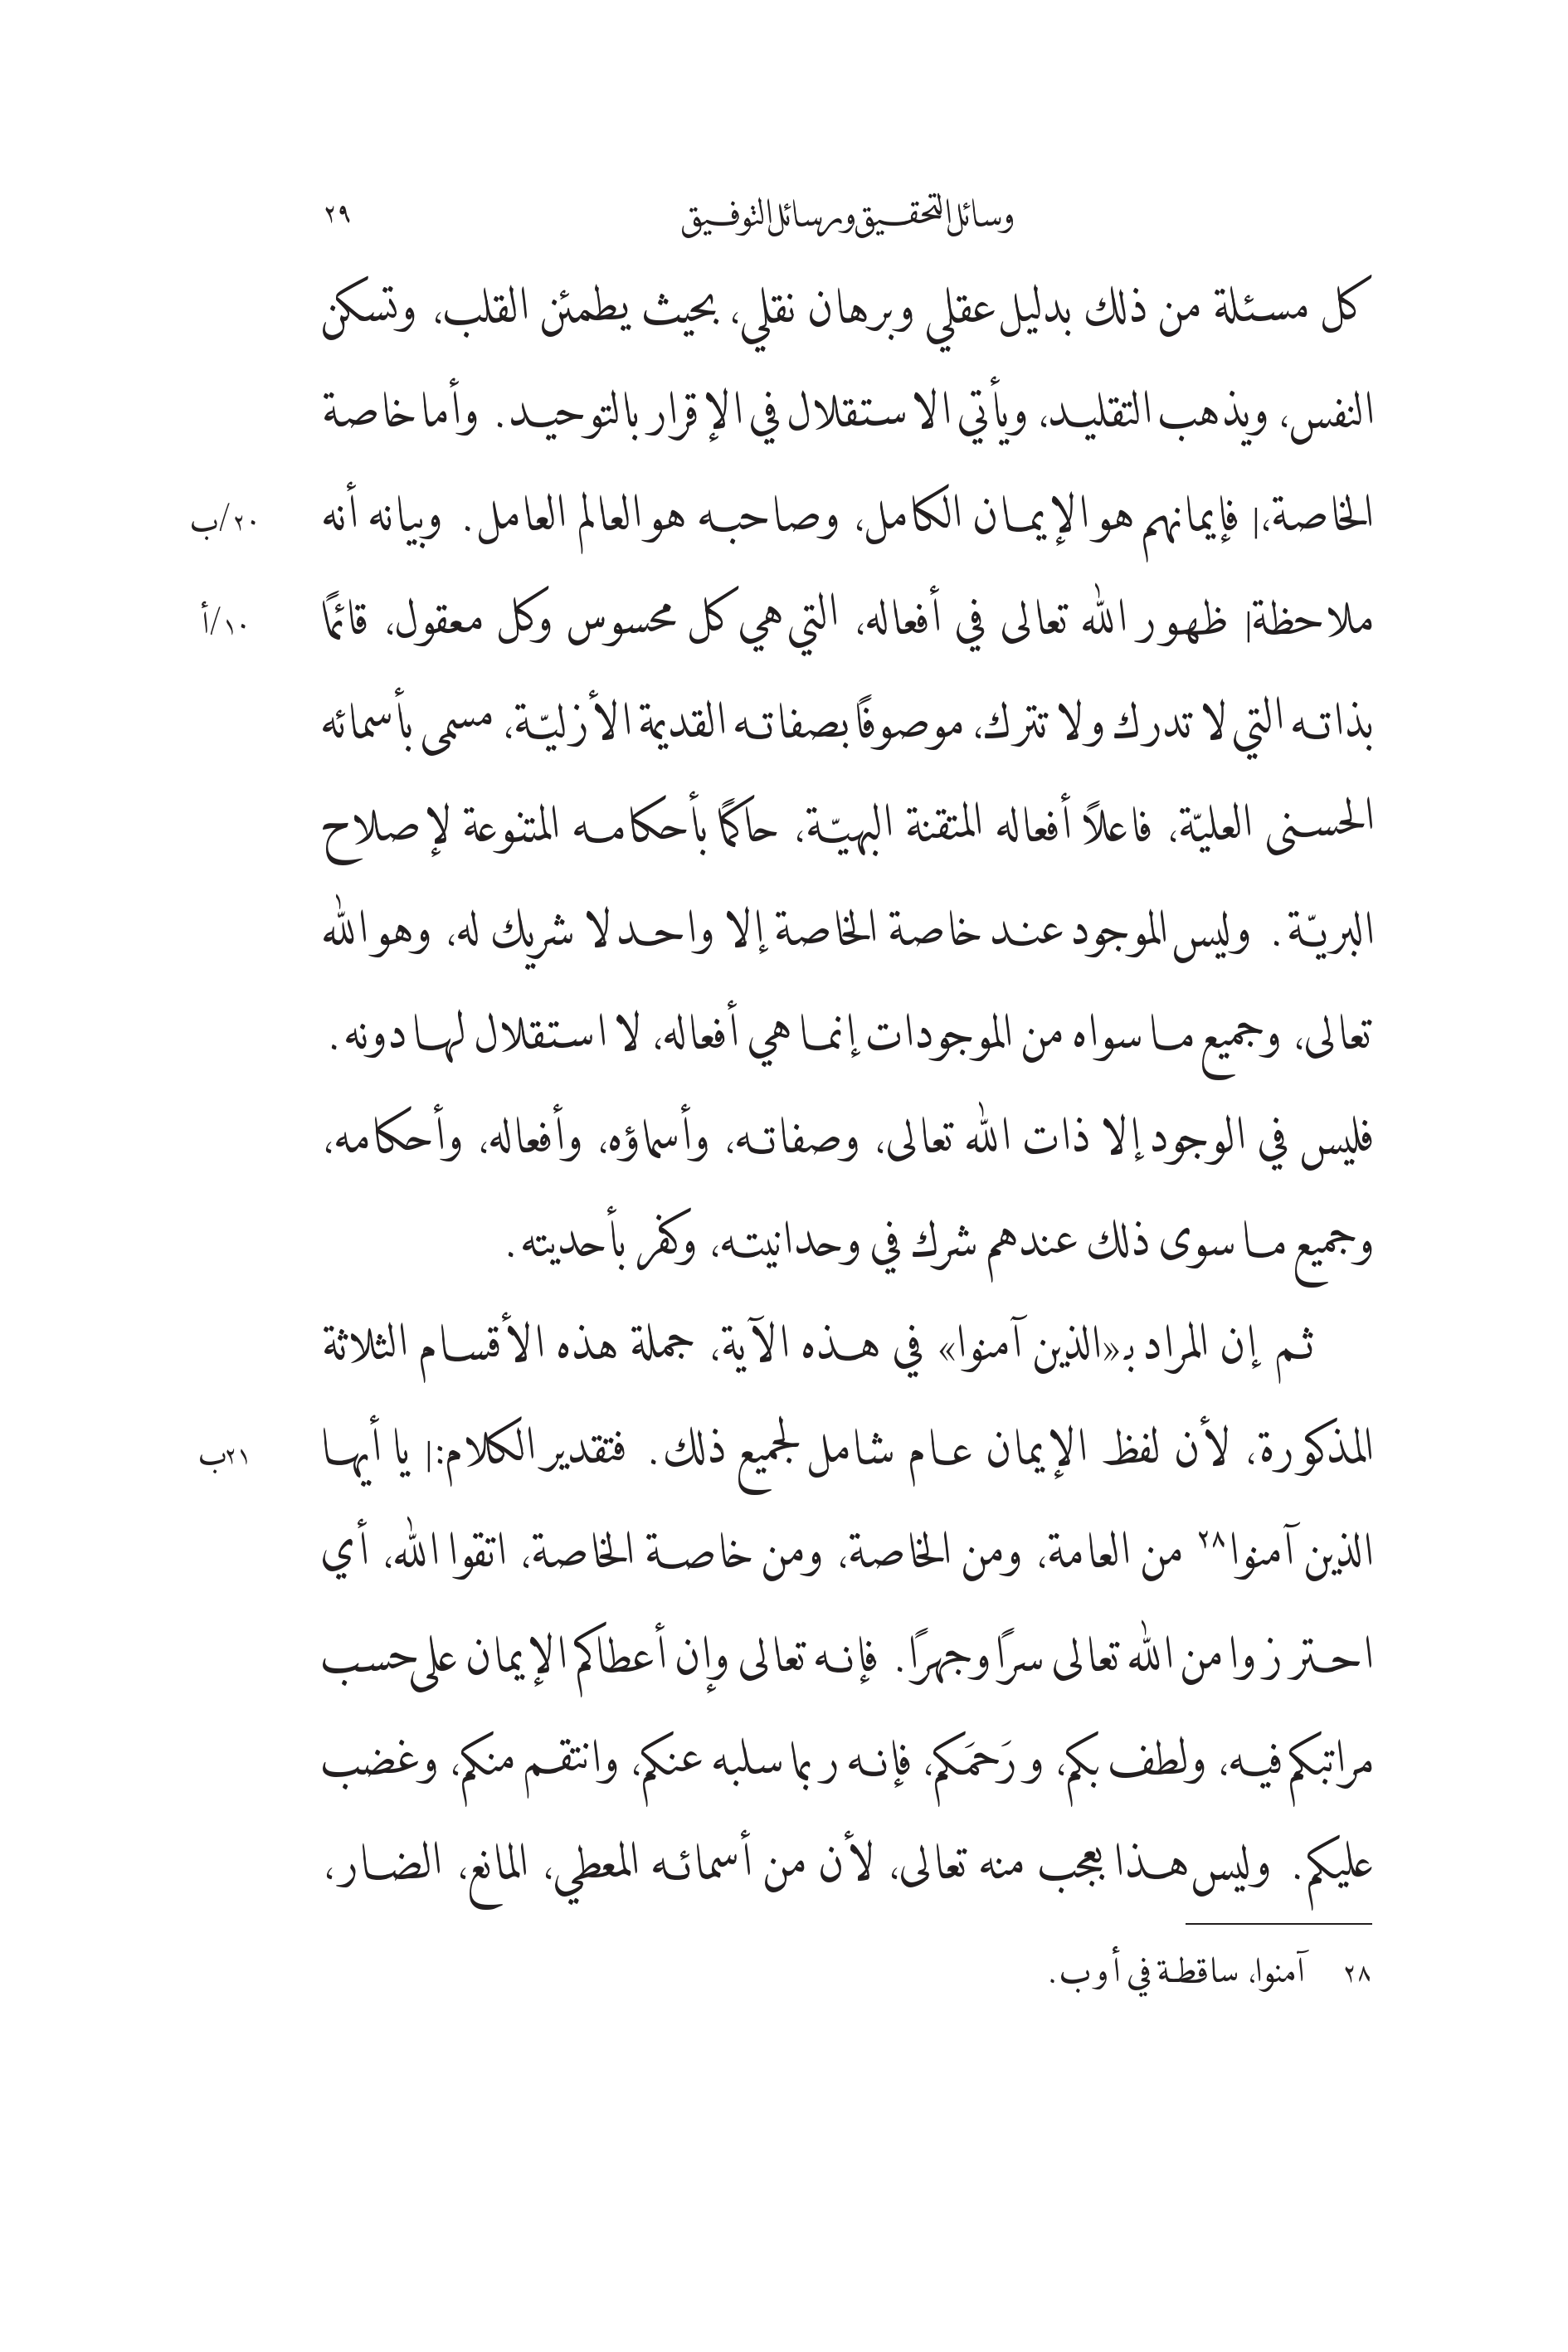 وسائل التحقيق ورسائل التوفيق ٢٩
كل مسئلة من ذلك بدليل عقلي وبرهان نقلي، بحيث يطمئن القلب، وتسكن
النفس، ويذهب التقليد، ويأتي الاستقلال في الإقرار بالتوحيد. وأما خاصة
الخاصة،| فإيمانهم هو الإيمان الكامل، وصاحبه هو العالم العامل. وبيانه أنه ٢٠/ب
ملاحظة| ظهور الله تعالى في أفعاله، التي هي كل محسوس وكل معقول، قائمًا ١٠/أ
بذاته التي لا تدرك ولا تترك، موصوفًا بصفاته القديمة الأزليّة، مسمى بأسمائه
الحسنى العليّة، فاعلاً أفعاله المتقنة البهيّة، حاكمًا بأحكامه المتنوعة لإصلاح
البريّة. وليس الموجود عند خاصة الخاصة إلا واحد لا شريك له، وهو الله
تعالى، وجميع ما سواه من الموجودات إنما هي أفعاله، لا استقلال لها دونه.
فليس في الوجود إلا ذات الله تعالى، وصفاته، وأسماؤه، وأفعاله، وأحكامه،
وجميع ما سوى ذلك عندهم شرك في وحدانيته، وكفر بأحديته.
ثم إن المراد بـ«الذين آمنوا» في هذه الآية، جملة هذه الأقسام الثلاثة
المذكورة، لأن لفظ الإيمان عام شامل لجميع ذلك. فتقدير الكلام:| يا أيها ٢١ب
الذين آمنوا٢٨ من العامة، ومن الخاصة، ومن خاصة الخاصة، اتقوا الله، أي
احترزوا من الله تعالى سرًا وجهرًا. فإنه تعالى وإن أعطاكم الإيمان على حسب
مراتبكم فيه، ولطف بكم، ورَحمَكم، فإنه ربما سلبه عنكم، وانتقم منكم، وغضب
عليكم. وليس هذا بعجب منه تعالى، لأن من أسمائه المعطي، المانع، الضار،
٢٨ آمنوا، ساقطة في أ و ب.